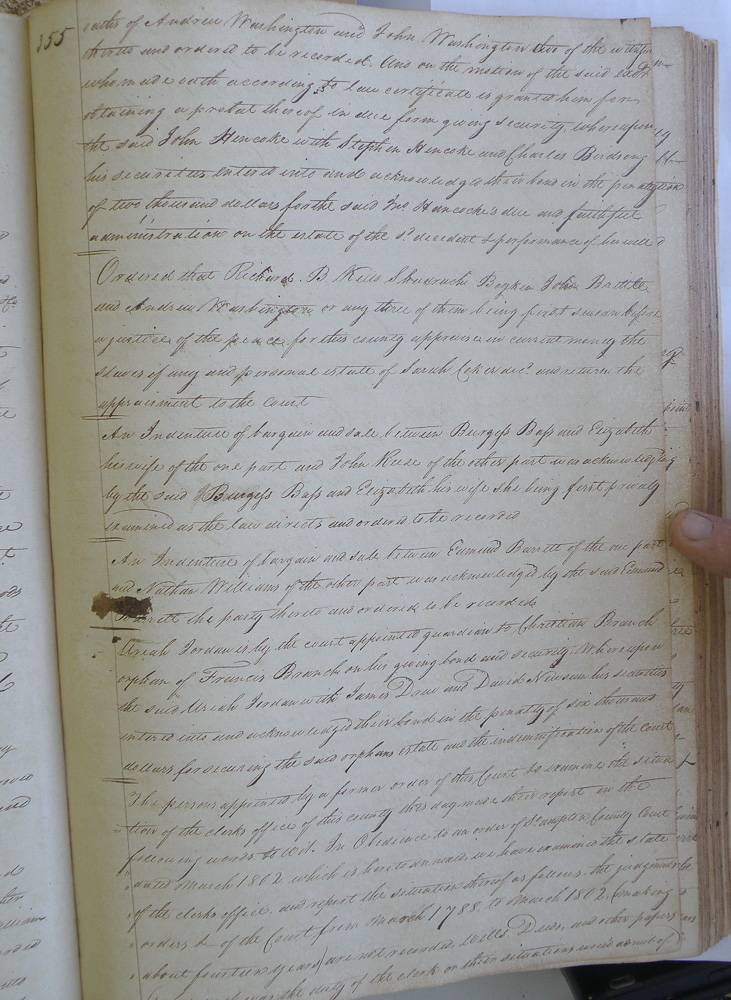 155
oaths of Andrew Washington and John Washington two of the witnesses
thereto and ordered to be recorded. And on the motion of the said
who made oath according to law certificate is granted him for
obtaining a probat thereof in due form giving security, whereupon
the said John Hancocke with Stephen Hancocke and Charles Birdsong
his securities entered into and acknowledged their bond in the penalty
of two thousand dollars for the said Jno Hancocke's due and faithful
administration on the estate of the sd. decedent & performance of her will
Ordered that Richard B Kello Shadrach Boykin John Battle
and Andrew Washington or any three of them being first sworn before
a justice of the peace for this county appraise in current money the
slaves if any and personal estate of Sarah Coker decd. and return the
appraisment to the Court
An Indenture of bargain and sale between Burgess Bass and Elizabeth
his wife of the one part and John Kerse of the other part was acknowledged
by the said Burgess Bass and Elizabeth his wife she being first privaly
examined as the law directs and ordered to be recorded
An Indenture of bargain and sale between Edmund Barrett of the one part
and Nathan Williams of the other part was acknowledged by the said Edmund
Barrett the party thereto and ordered to be recorded
Uriah Jordan is by the court appointed guardian to Christian Branch
orphan of Francis Branch on his giving bond and security, Whereupon
the said Uriah Jordan with James Drew and David Newsum his securities
entered into and acknowledged their bond in the penalty of six thousand
dollars for securing the said orphans estate and the indemnification of the court
The persons appointed by a former order of this Court to examine the situa
tion of the clerks office of this county this day made their report in the
following words to wit. In Obedience to an order of Southampton County Court
dated March 1802 which is hereto annexed we have examined the state
of the clerks office, and report the situation thereof as follows. the judgments
orders & of the Court from March 1788, to March 1802, (making
about fourteen years) are not recorded. Wills, Deeds, and other papers
was the duty of the clerk on their